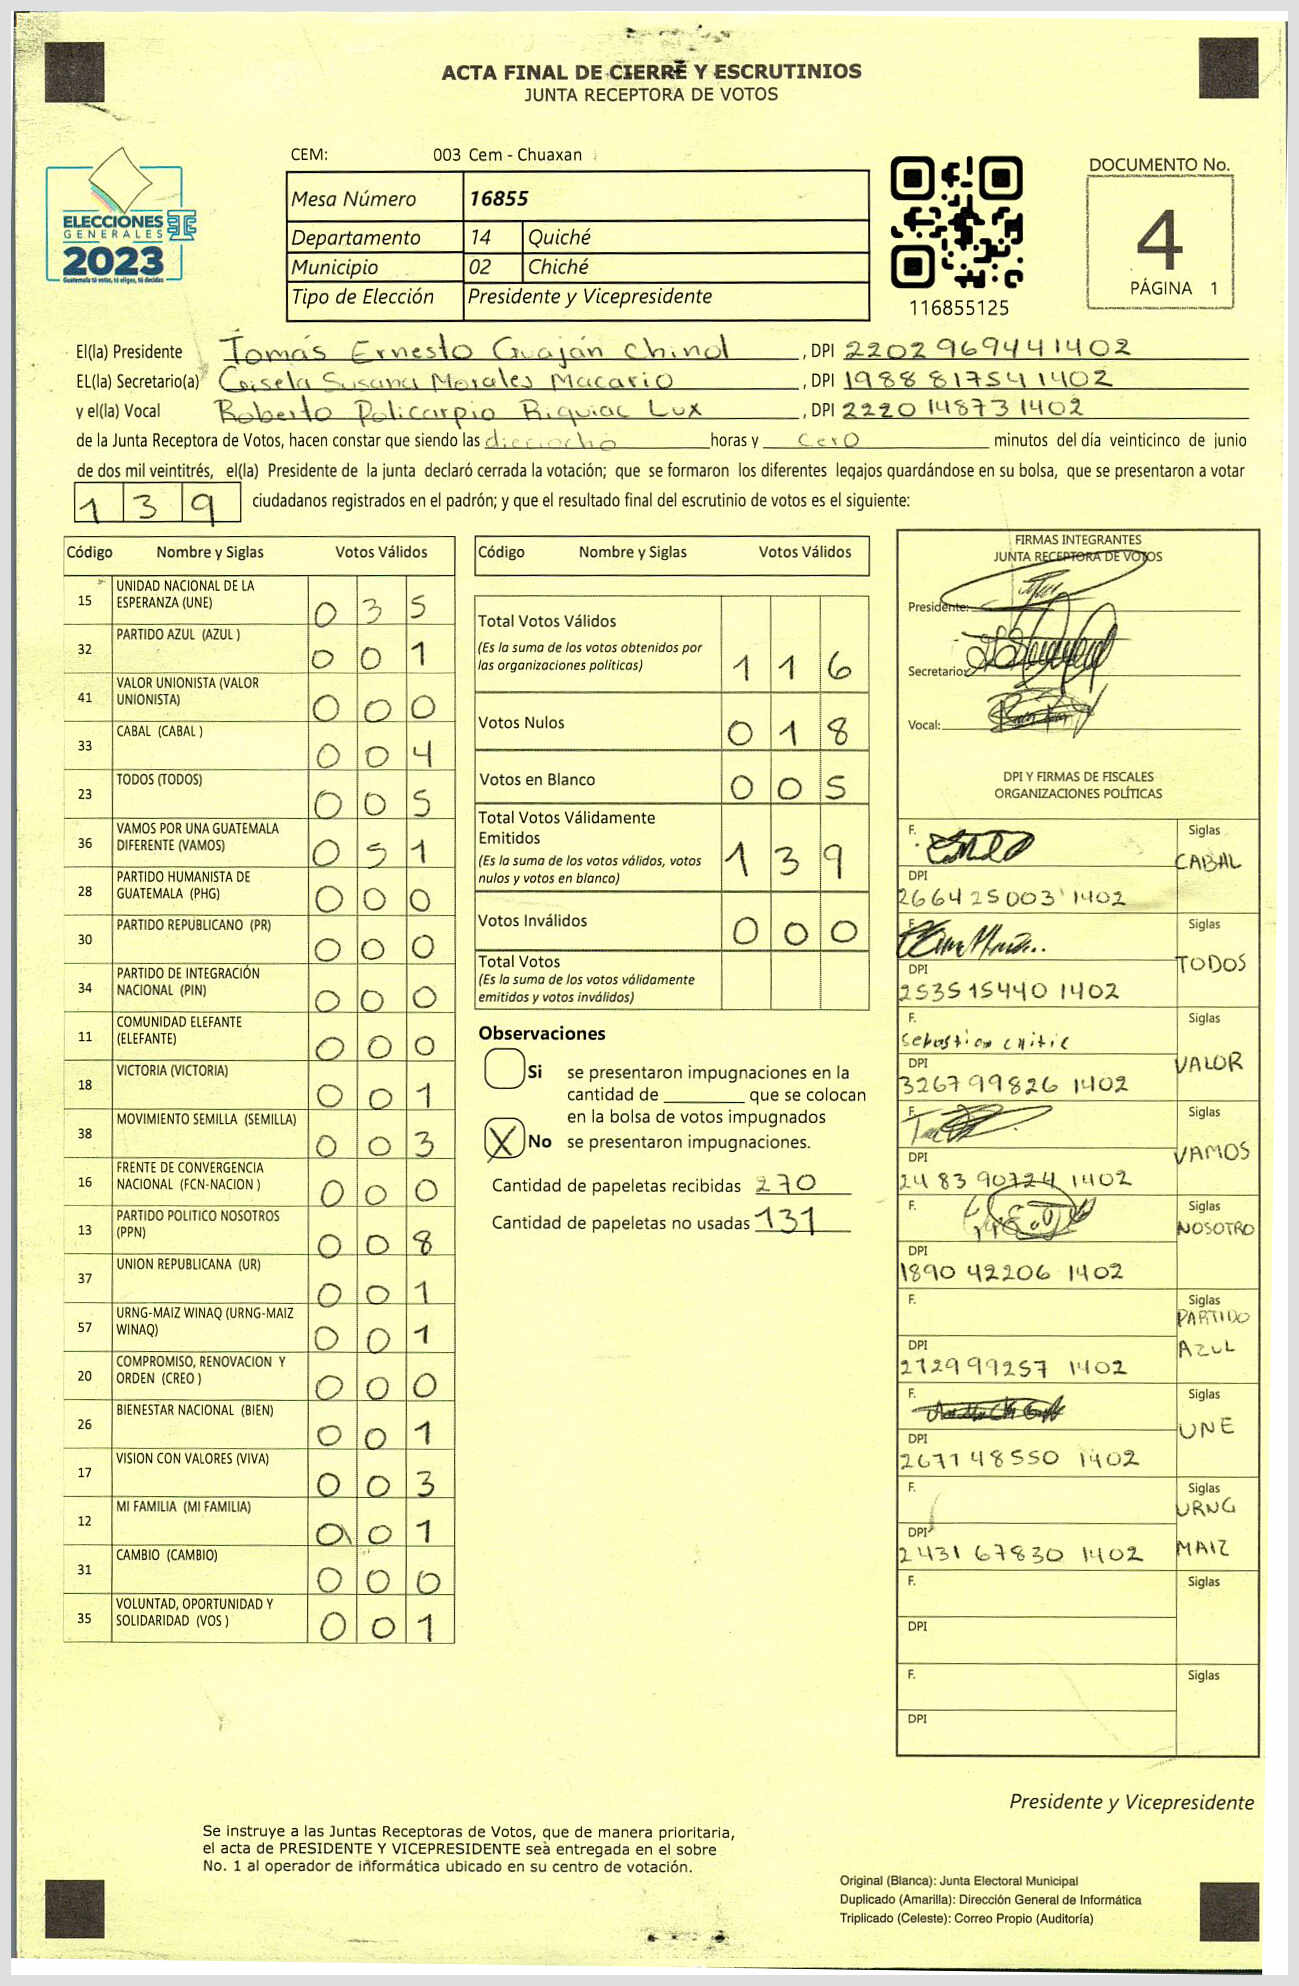 ACTA FINAL DE CIERRE Y ESCRUTINIOS
JUNTA RECEPTORA DE VOTOS
CEM: 003 Cem - Chuaxan
ELECCIONES
GENERALES
2023
Guatemala tú votas, tú eliges, tú decides
Mesa Número 16855
Departamento 14 Quiché
Municipio 02 Chiché
Tipo de Elección Presidente y Vicepresidente
116855125
DOCUMENTO No.
4
PÁGINA 1
El(la) Presidente Tomás Ernesto Guaján Chinol , DPI 2202969441402
EL(la) Secretario(a) Gisela Susana Morales Macario , DPI 1988817541402
y el(la) Vocal Roberto Policarpio Riquiac Lux , DPI 2220148731402
de la Junta Receptora de Votos, hacen constar que siendo las dieciocho horas y cero minutos del día veinticinco de junio
de dos mil veintitrés, el(la) Presidente de la junta declaró cerrada la votación; que se formaron los diferentes legajos quardándose en su bolsa, que se presentaron a votar
139 ciudadanos registrados en el padrón; y que el resultado final del escrutinio de votos es el siguiente:
Código Nombre y Siglas Votos Válidos
15 UNIDAD NACIONAL DE LA ESPERANZA (UNE) 035
32 PARTIDO AZUL (AZUL ) 001
41 VALOR UNIONISTA (VALOR UNIONISTA) 000
33 CABAL (CABAL ) 004
23 TODOS (TODOS) 005
36 VAMOS POR UNA GUATEMALA DIFERENTE (VAMOS) 051
28 PARTIDO HUMANISTA DE GUATEMALA (PHG) 000
30 PARTIDO REPUBLICANO (PR) 000
34 PARTIDO DE INTEGRACIÓN NACIONAL (PIN) 000
11 COMUNIDAD ELEFANTE (ELEFANTE) 000
18 VICTORIA (VICTORIA) 001
38 MOVIMIENTO SEMILLA (SEMILLA) 003
16 FRENTE DE CONVERGENCIA NACIONAL (FCN-NACION ) 000
13 PARTIDO POLITICO NOSOTROS (PPN) 008
37 UNION REPUBLICANA (UR) 001
57 URNG-MAIZ WINAQ (URNG-MAIZ WINAQ) 001
20 COMPROMISO, RENOVACION Y ORDEN (CREO ) 000
26 BIENESTAR NACIONAL (BIEN) 001
17 VISION CON VALORES (VIVA) 003
12 MI FAMILIA (MI FAMILIA) 001
31 CAMBIO (CAMBIO) 000
35 VOLUNTAD, OPORTUNIDAD Y SOLIDARIDAD (VOS ) 001
Código Nombre y Siglas Votos Válidos
Total Votos Válidos 116
(Es la suma de los votos obtenidos por
las organizaciones políticas)
Votos Nulos 018
Votos en Blanco 005
Total Votos Válidamente
Emitidos 139
(Es la suma de los votos válidos, votos
nulos y votos en blanco)
Votos Inválidos 000
Total Votos
(Es la suma de los votos válidamente
emitidos y votos inválidos)
Observaciones
Si se presentaron impugnaciones en la
cantidad de ________ que se colocan
en la bolsa de votos impugnados
X No se presentaron impugnaciones.
Cantidad de papeletas recibidas 270
Cantidad de papeletas no usadas 131
FIRMAS INTEGRANTES
JUNTA RECEPTORA DE VOTOS
Presidente:
Secretario:
Vocal:
DPI Y FIRMAS DE FISCALES
ORGANIZACIONES POLÍTICAS
F. Siglas
CABAL
DPI
2664250031402
F. Siglas
TODOS
DPI
2535154401402
F. Siglas
Sebastian
VALOR
DPI
3267998261402
F. Siglas
VAMOS
DPI
2483907241402
F. Siglas
NOSOTRO
DPI
1890422061402
F. Siglas
PARTIDO
AZUL
DPI
2729992571402
F. Siglas
UNE
DPI
2671485501402
F. Siglas
URNG
MAIZ
DPI
2431678301402
F. Siglas
DPI
F. Siglas
DPI
Presidente y Vicepresidente
Se instruye a las Juntas Receptoras de Votos, que de manera prioritaria,
el acta de PRESIDENTE Y VICEPRESIDENTE sea entregada en el sobre
No. 1 al operador de informática ubicado en su centro de votación.
Original (Blanca): Junta Electoral Municipal
Duplicado (Amarilla): Dirección General de Informática
Triplicado (Celeste): Correo Propio (Auditoría)